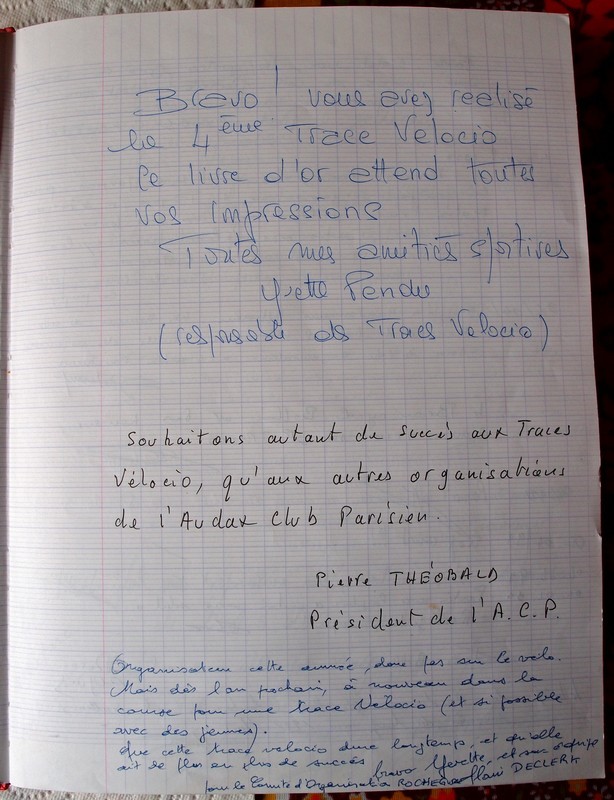 Bravo ! vous avez realisé
la 4ème Trace Velocio
Ce livre d'or attend toutes
vos impressions
Toutes mes amitiés sportives
Yvette Pendu
(responsable des Traces Velocio)
Souhaitons autant de succès aux Traces
Vélocio, qu'aux autres organisations
de l'Audax Club Parisien.
Pierre THÉOBALD
Président de l'A.C.P.
Organisateur cette année, donc pas sur le vélo.
Mais dès l'an prochain, à nouveau dans la
course pour une trace Vélocio (et si possible
avec des jeunes).
Que cette trace velocio dure longtemps, et qu'elle
ait de plus en plus de succès bravo Yvette, et son équipe
pour le Comité d'Organisation à Alain DECLERK